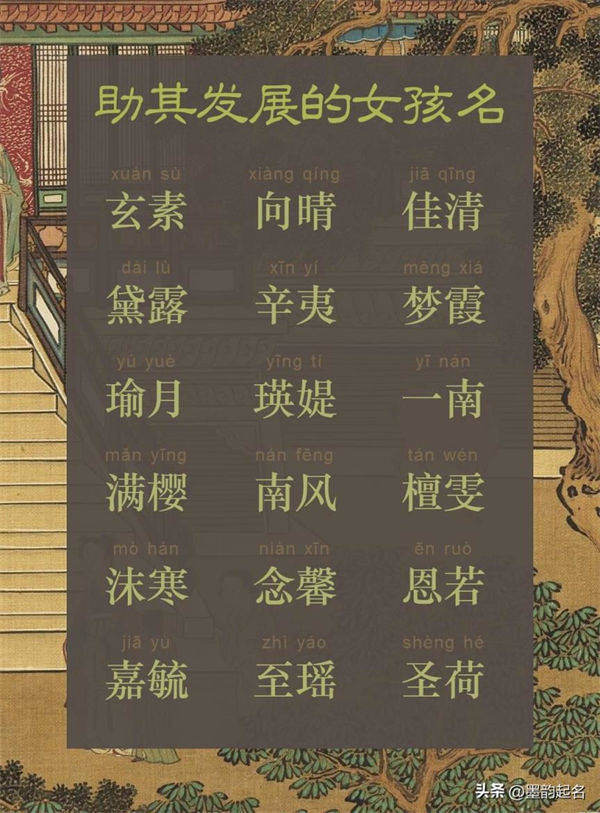 助其发展的女孩名
xuán sù xiàng qíng jiā qīng
玄素 向晴 佳清
dài lù xīn yí mèng xiá
黛露 辛夷 梦霞
yú yuè yīng tí yī nán
瑜月 瑛媞 一南
mǎn yīng nán fēng tán wén
满樱 南风 檀雯
mò hán niàn xīn ēn ruò
沫寒 念馨 恩若
jiā yù zhì yáo shèng hé
嘉毓 至瑶 圣荷
头条 @墨韵起名